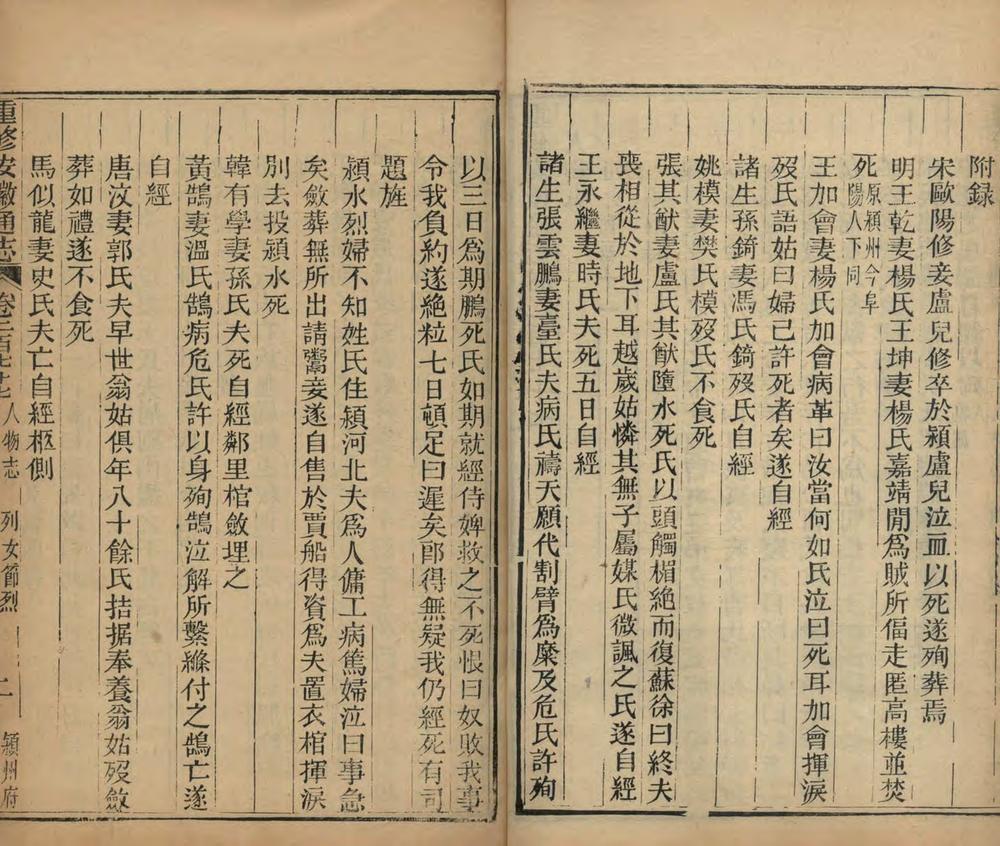 附録
宋歐陽修妾盧兒修卒於潁盧兒泣血以死遂殉葬焉
明王乾妻楊氏王坤妻楊氏嘉靖閒爲賊所偪走匿高樓並焚
死原潁州今阜陽人下同
王加會妻楊氏加會病革曰汝當何如氏泣曰死耳加會揮淚
歿氏語姑曰婦已許死者矣遂自經
諸生孫錡妻馮氏錡歿氏自經
姚模妻樊氏模歿氏不食死
張其猷妻盧氏其猷墮水死氏以頭觸楣絶而復蘇徐曰終夫
喪相從於地下耳越歲姑憐其無子屬媒氏微諷之氏遂自經
王永繼妻時氏夫死五日自經
諸生張雲鵬妻臺氏夫病氏禱天願代割臂爲糜及危氏許殉
以三日爲期鵬死氏如期就經侍婢救之不死恨曰奴敗我事
令我負約遂絶粒七日頓足曰遲矣郎得無疑我仍經死有司
題旌
潁水烈婦不知姓氏住潁河北夫爲人傭工病篤婦泣曰事急
矣斂葬無所出請鬻妾遂自售於賈船得資爲夫置衣棺揮淚
別去投潁水死
韓有學妻孫氏夫死自經鄰里棺斂埋之
黃鵠妻溫氏鵠病危氏許以身殉鵠泣解所繫絛付之鵠亡遂
自經
唐汶妻郭氏夫早世翁姑俱年八十餘氏拮据奉養翁姑歿斂
葬如禮遂不食死
馬似龍妻史氏夫亡自經柩側
重修安徽通志 卷二百七十七 人物志 列女節烈 二 潁州府